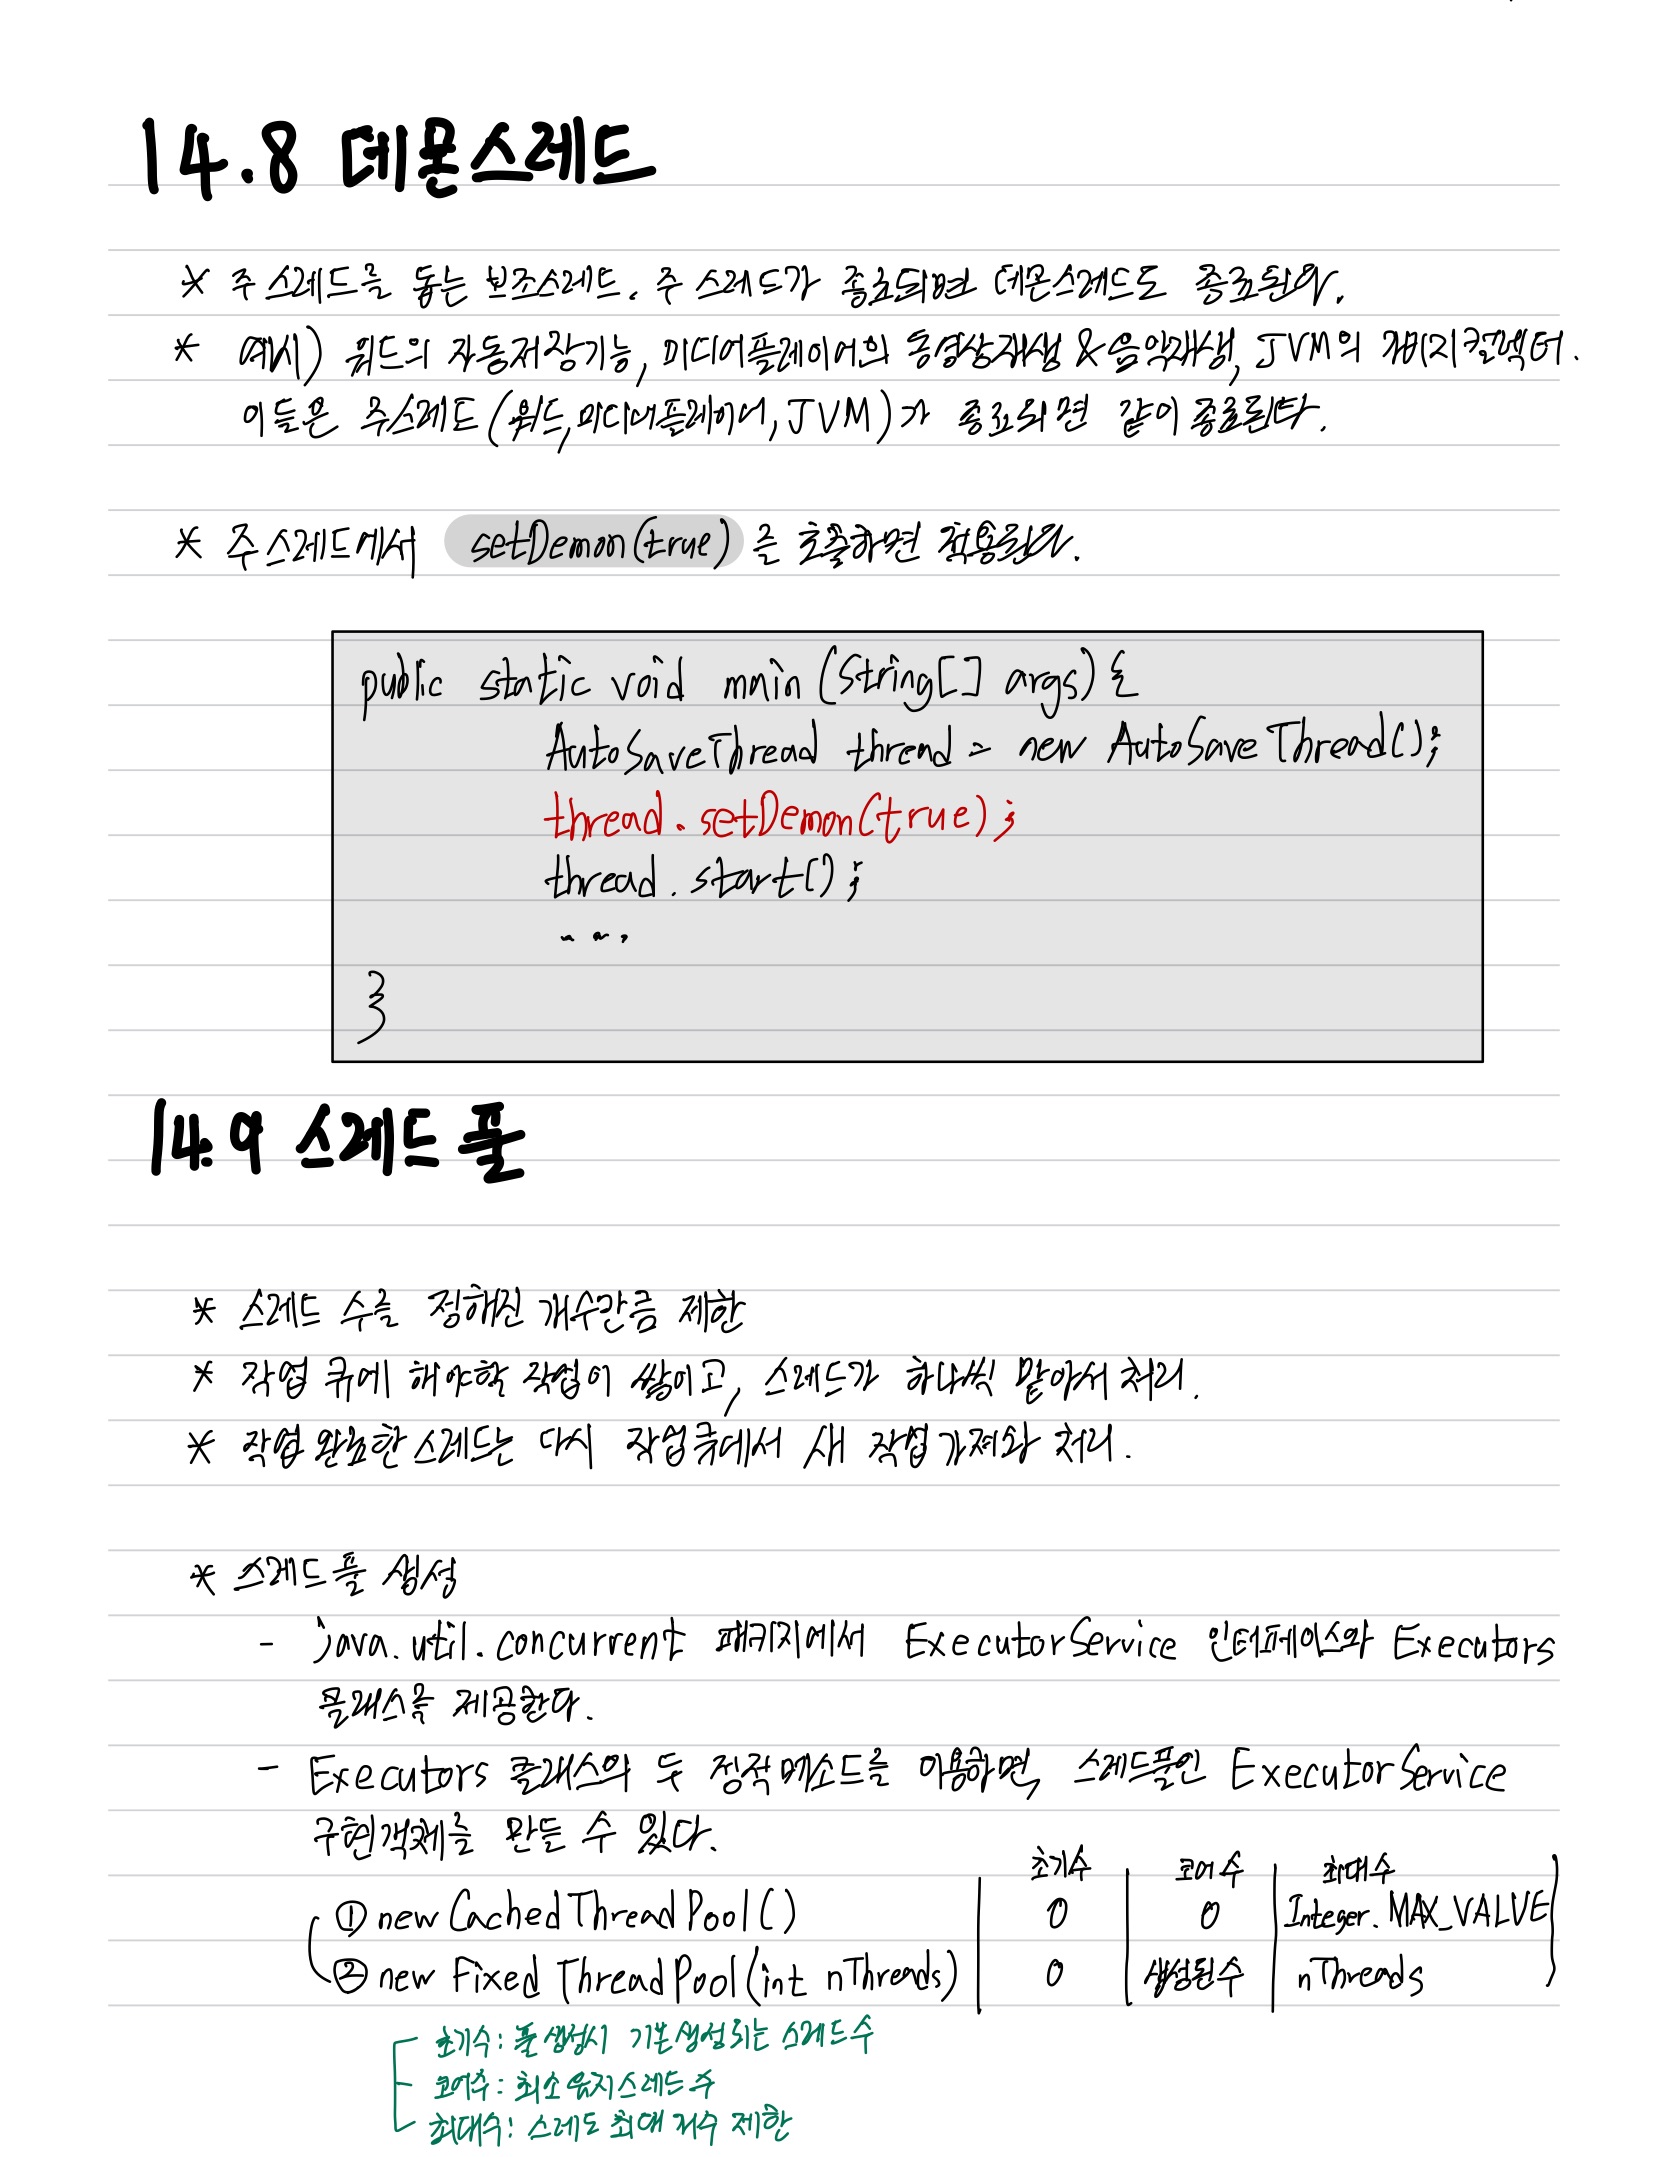 14.8 데몬스레드
* 주 스레드를 돕는 보조스레드. 주 스레드가 종료되면 데몬스레드도 종료된다.
* 예시) 워드의 자동저장기능, 미디어플레이어의 동영상재생 & 음악재생, JVM의 가비지컬렉터.
이들은 주스레드(워드,미디어플레이어,JVM)가 종료되면 같이 종료된다.
* 주 스레드에서 setDemon(true) 를 호출하면 적용된다.
public static void main (String[] args) {
AutoSaveThread thread = new AutoSaveThread();
thread.setDemon(true);
thread.start();
...
}
14.9 스레드 풀
* 스레드 수를 정해진 개수만큼 제한
* 작업 큐에 해야할 작업이 쌓이고, 스레드가 하나씩 맡아서 처리.
* 작업 완료한 스레드는 다시 작업큐에서 새 작업 가져와 처리.
* 스레드 풀 생성
- java.util.concurrent 패키지에서 ExecutorService 인터페이스와 Executors
클래스를 제공한다.
- Executors 클래스의 두 정적메소드를 이용하면, 스레드풀인 ExecutorService
구현객체를 만들 수 있다.
초기수 코어 수 최대수
① newCachedThreadPool() 0 0 Integer.MAX_VALUE
② newFixedThreadPool(int nThreads) 0 생성된 수 nThreads
초기수: 풀 생성시 기본생성되는 스레드 수
코어수: 최소 유지 스레드 수
최대수: 스레드 최대 개수 제한